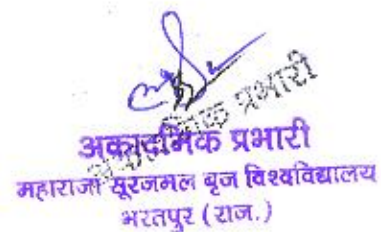 अकादमिक प्रभारी
अकादमिक प्रभारी
महाराजा सूरजमल बृज विश्वविद्यालय
भरतपुर (राज.)